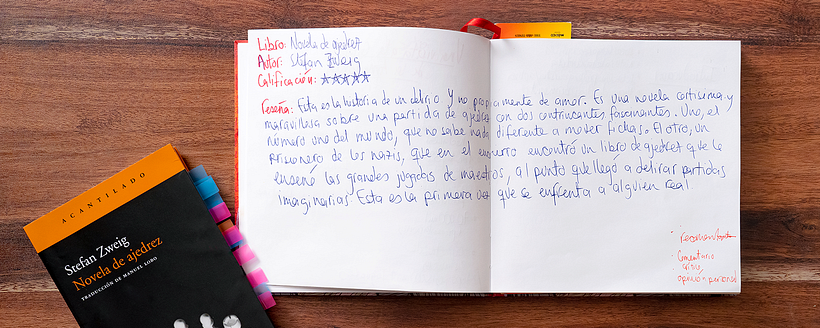 Libro: Novela de ajedrez
Autor: Stefan Zweig
Calificación: ☆☆☆☆☆
reseña: Esta es la historia de un delirio y no propiamente de amor. Es una novela cortísima y
maravillosa sobre una partida de ajedrez con dos contrincantes fascinantes. Uno, el
número uno del mundo, que no sabe nada diferente a mover fichas. El otro, un
prisionero de los nazis, que en el encierro encontró un libro de ajedrez que le
enseñó las grandes jugadas de maestros, al punto que llegó a delirar partidas
imaginarias. Esta es la primera vez que se enfrenta a alguien real.
Comentario
crítico
opinión personal
ACANTILADO
Stefan Zweig
Novela de ajedrez
TRADUCCIÓN DE MANUEL LOBO